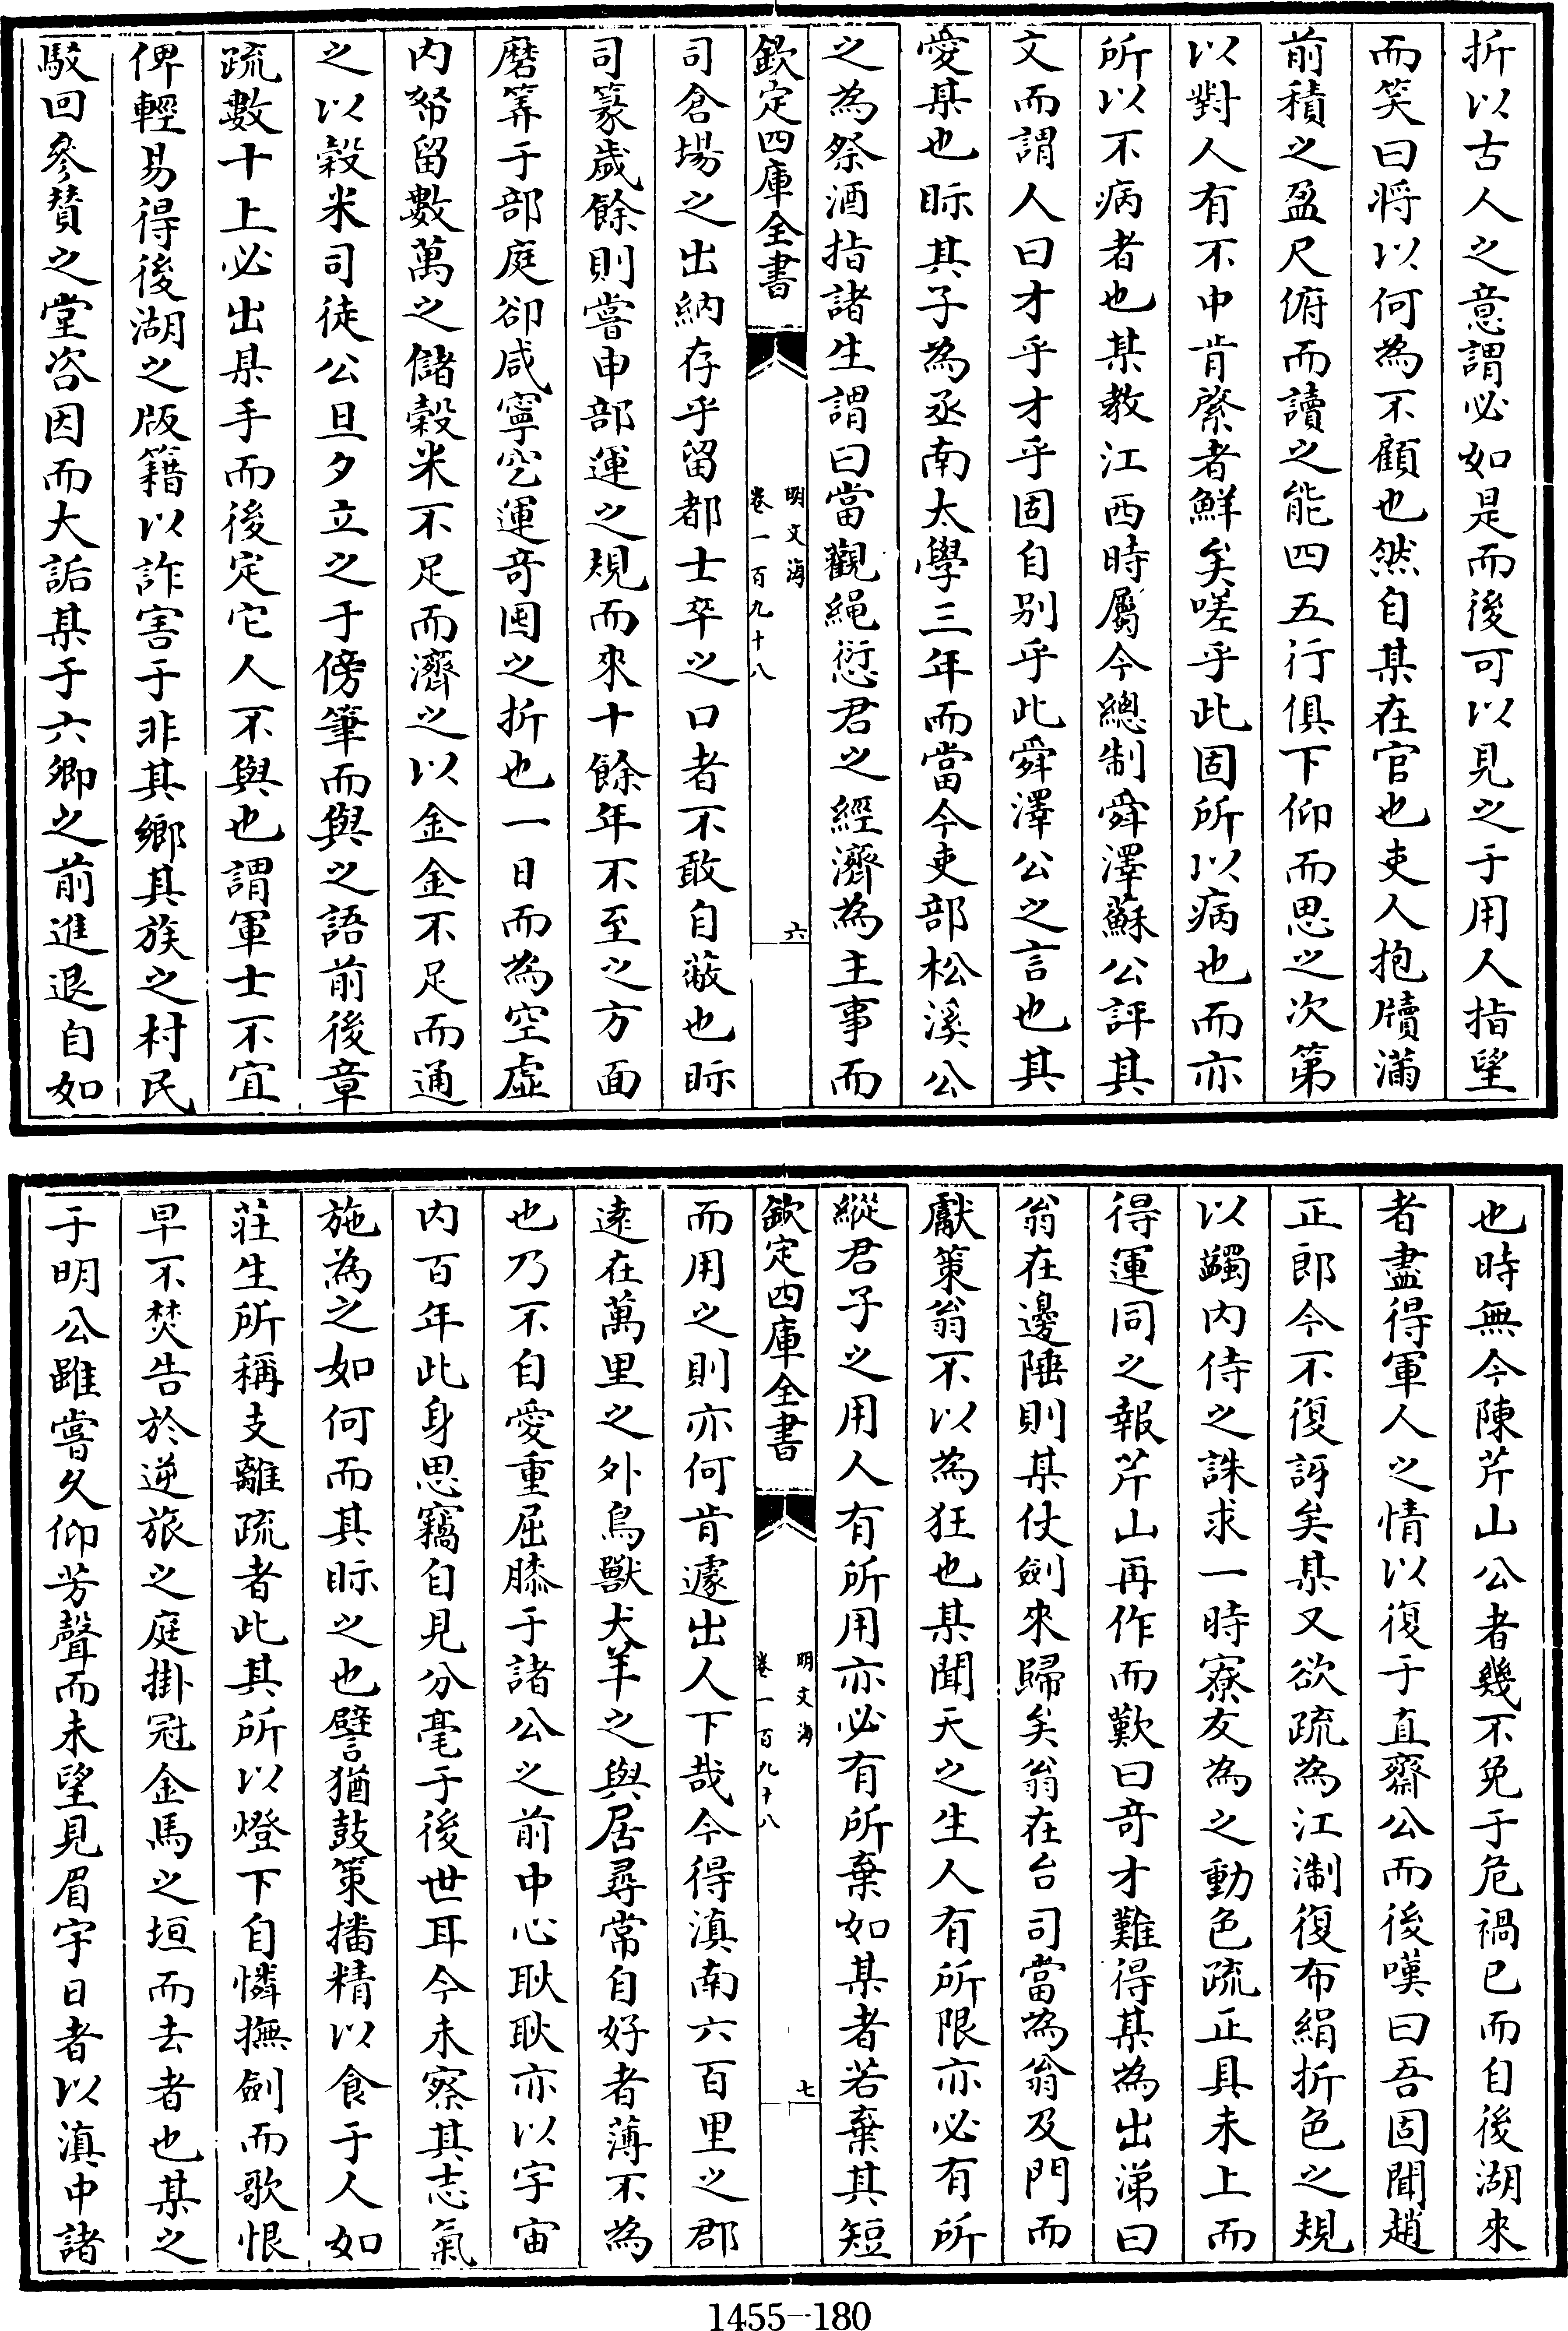 折以古人之意謂必如是而後可以見之于用人指望
而笑曰將以何為不顧也然自某在官也吏人抱牘滿
前積之盈尺俯而讀之能四五行俱下仰而思之次第
以對人有不中肯綮者鮮矣嗟乎此固所以病也而亦
所以不病者也某教江西時屬今總制舜澤蘇公評其
文而謂人曰才乎才乎固自别乎此舜澤公之言也其
愛某也眎其子為丞南太學三年而當今吏部松溪公
之為祭酒指諸生謂曰當觀繩愆君之經濟為主事而
欽定四庫全書
明文海
卷一百九十八
六
司倉場之出納存乎留都士卒之口者不敢自蔽也眎
司篆歲餘則嘗申部運之規而來十餘年不至之方面
磨筭于部庭卻咸寧空運竒囷之折也一日而為空虛
内帑留數萬之儲穀米不足而濟之以金金不足而通
之以穀米司徒公旦夕立之于傍筆而與之語前後章
疏數十上必出某手而後定它人不與也謂軍士不宜
俾輕易得後湖之版籍以詐害于非其鄉其族之村民
駁回參贊之堂咨因而大詬某于六卿之前進退自如
也時無今陳芹山公者幾不免于危禍已而自後湖來
者盡得軍人之情以復于直齋公而後嘆曰吾固聞趙
正郎今不復訝矣某又欲疏為江淛復布絹折色之規
以蠲内侍之誅求一時寮友為之動色疏正具未上而
得運同之報芹山再作而歎曰竒才難得某為出涕曰
翁在邊陲則某仗劍來歸矣翁在台司當為翁及門而
獻策翁不以為狂也某聞天之生人有所限亦必有所
縱君子之用人有所用亦必有所棄如某者若棄其短
欽定四庫全書
明文海
卷一百九十八
七
而用之則亦何肯遽出人下哉今得滇南六百里之郡
逺在萬里之外鳥獸犬羊之與居尋常自好者薄不為
也乃不自愛重屈膝于諸公之前中心耿耿亦以宇宙
内百年此身思竊自見分毫于後世耳今未察其志氣
施為之如何而其眎之也譬猶鼓䇿播精以食于人如
莊生所稱支離疏者此其所以燈下自憐撫劍而歌恨
早不焚告於逆旅之庭掛冠金馬之垣而去者也某之
于明公雖嘗久仰芳聲而未望見眉宇日者以滇中諸
1455-180